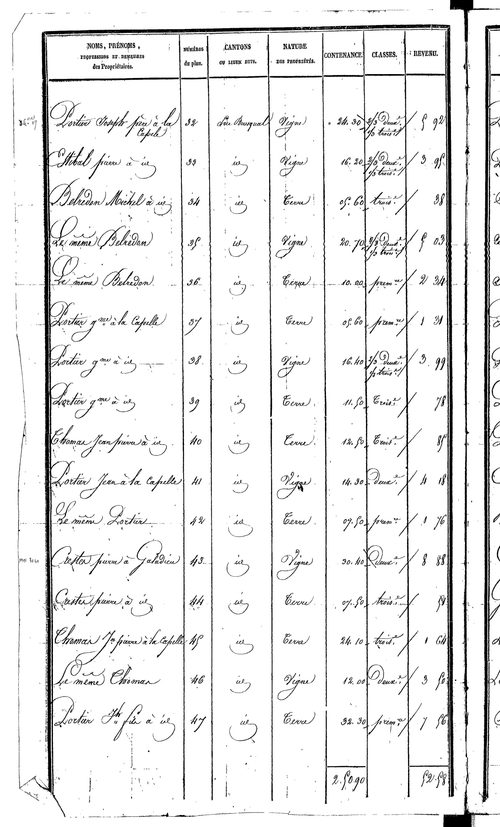 NOMS, PRÉNOMS, PROFESSIONS ET DEMEURES des Propriétaires. NUMÉROS du plan. CANTONS OU LIEUX DITS. NATURE DES PROPRIÉTÉS. CONTENANCE. CLASSES. REVENU.
Portier Joseph père à la Capelle 32 Vigne 24.30 2/3 deux. 1/3 trois. 5 92
pierre à id 33 id Vigne 16.20 2/3 deux. 1/3 trois. 3 95
Belredon Michel à id 34 id Terre 05.60 trois. 38
Le même Belredon 35 id Vigne 20.70 2/3 deux. 1/3 trois. 5 03
Le même Belredon 36 id Terre 10.00 prem. 2 34
Portier gme à la Capelle 37 id Terre 05.60 prem. 1 31
Portier gme à id 38 id Vigne 16.40 2/3 deux. 1/3 trois. 3 99
Portier gme à id 39 id Terre 11.50 trois. 78
Thomas Jean pierre à id 40 id Terre 12.50 trois. 85
Portier Jean à la Capelle 41 id Vigne 14.30 deux. 4 18
Le même Portier 42 id Terre 07.50 prem. 1 76
Crestes pierre à 43 id Vigne 30.40 deux. 8 88
Crestes pierre à id 44 id Terre 07.50 trois. 51
Thomas Jn pierre à la Capelle 45 id Terre 24.10 trois. 1 64
Le même Thomas 46 id Vigne 12.00 deux. 3 50
Portier fils à id 47 id Terre 32.30 prem. 7 56
2.5090 52.58